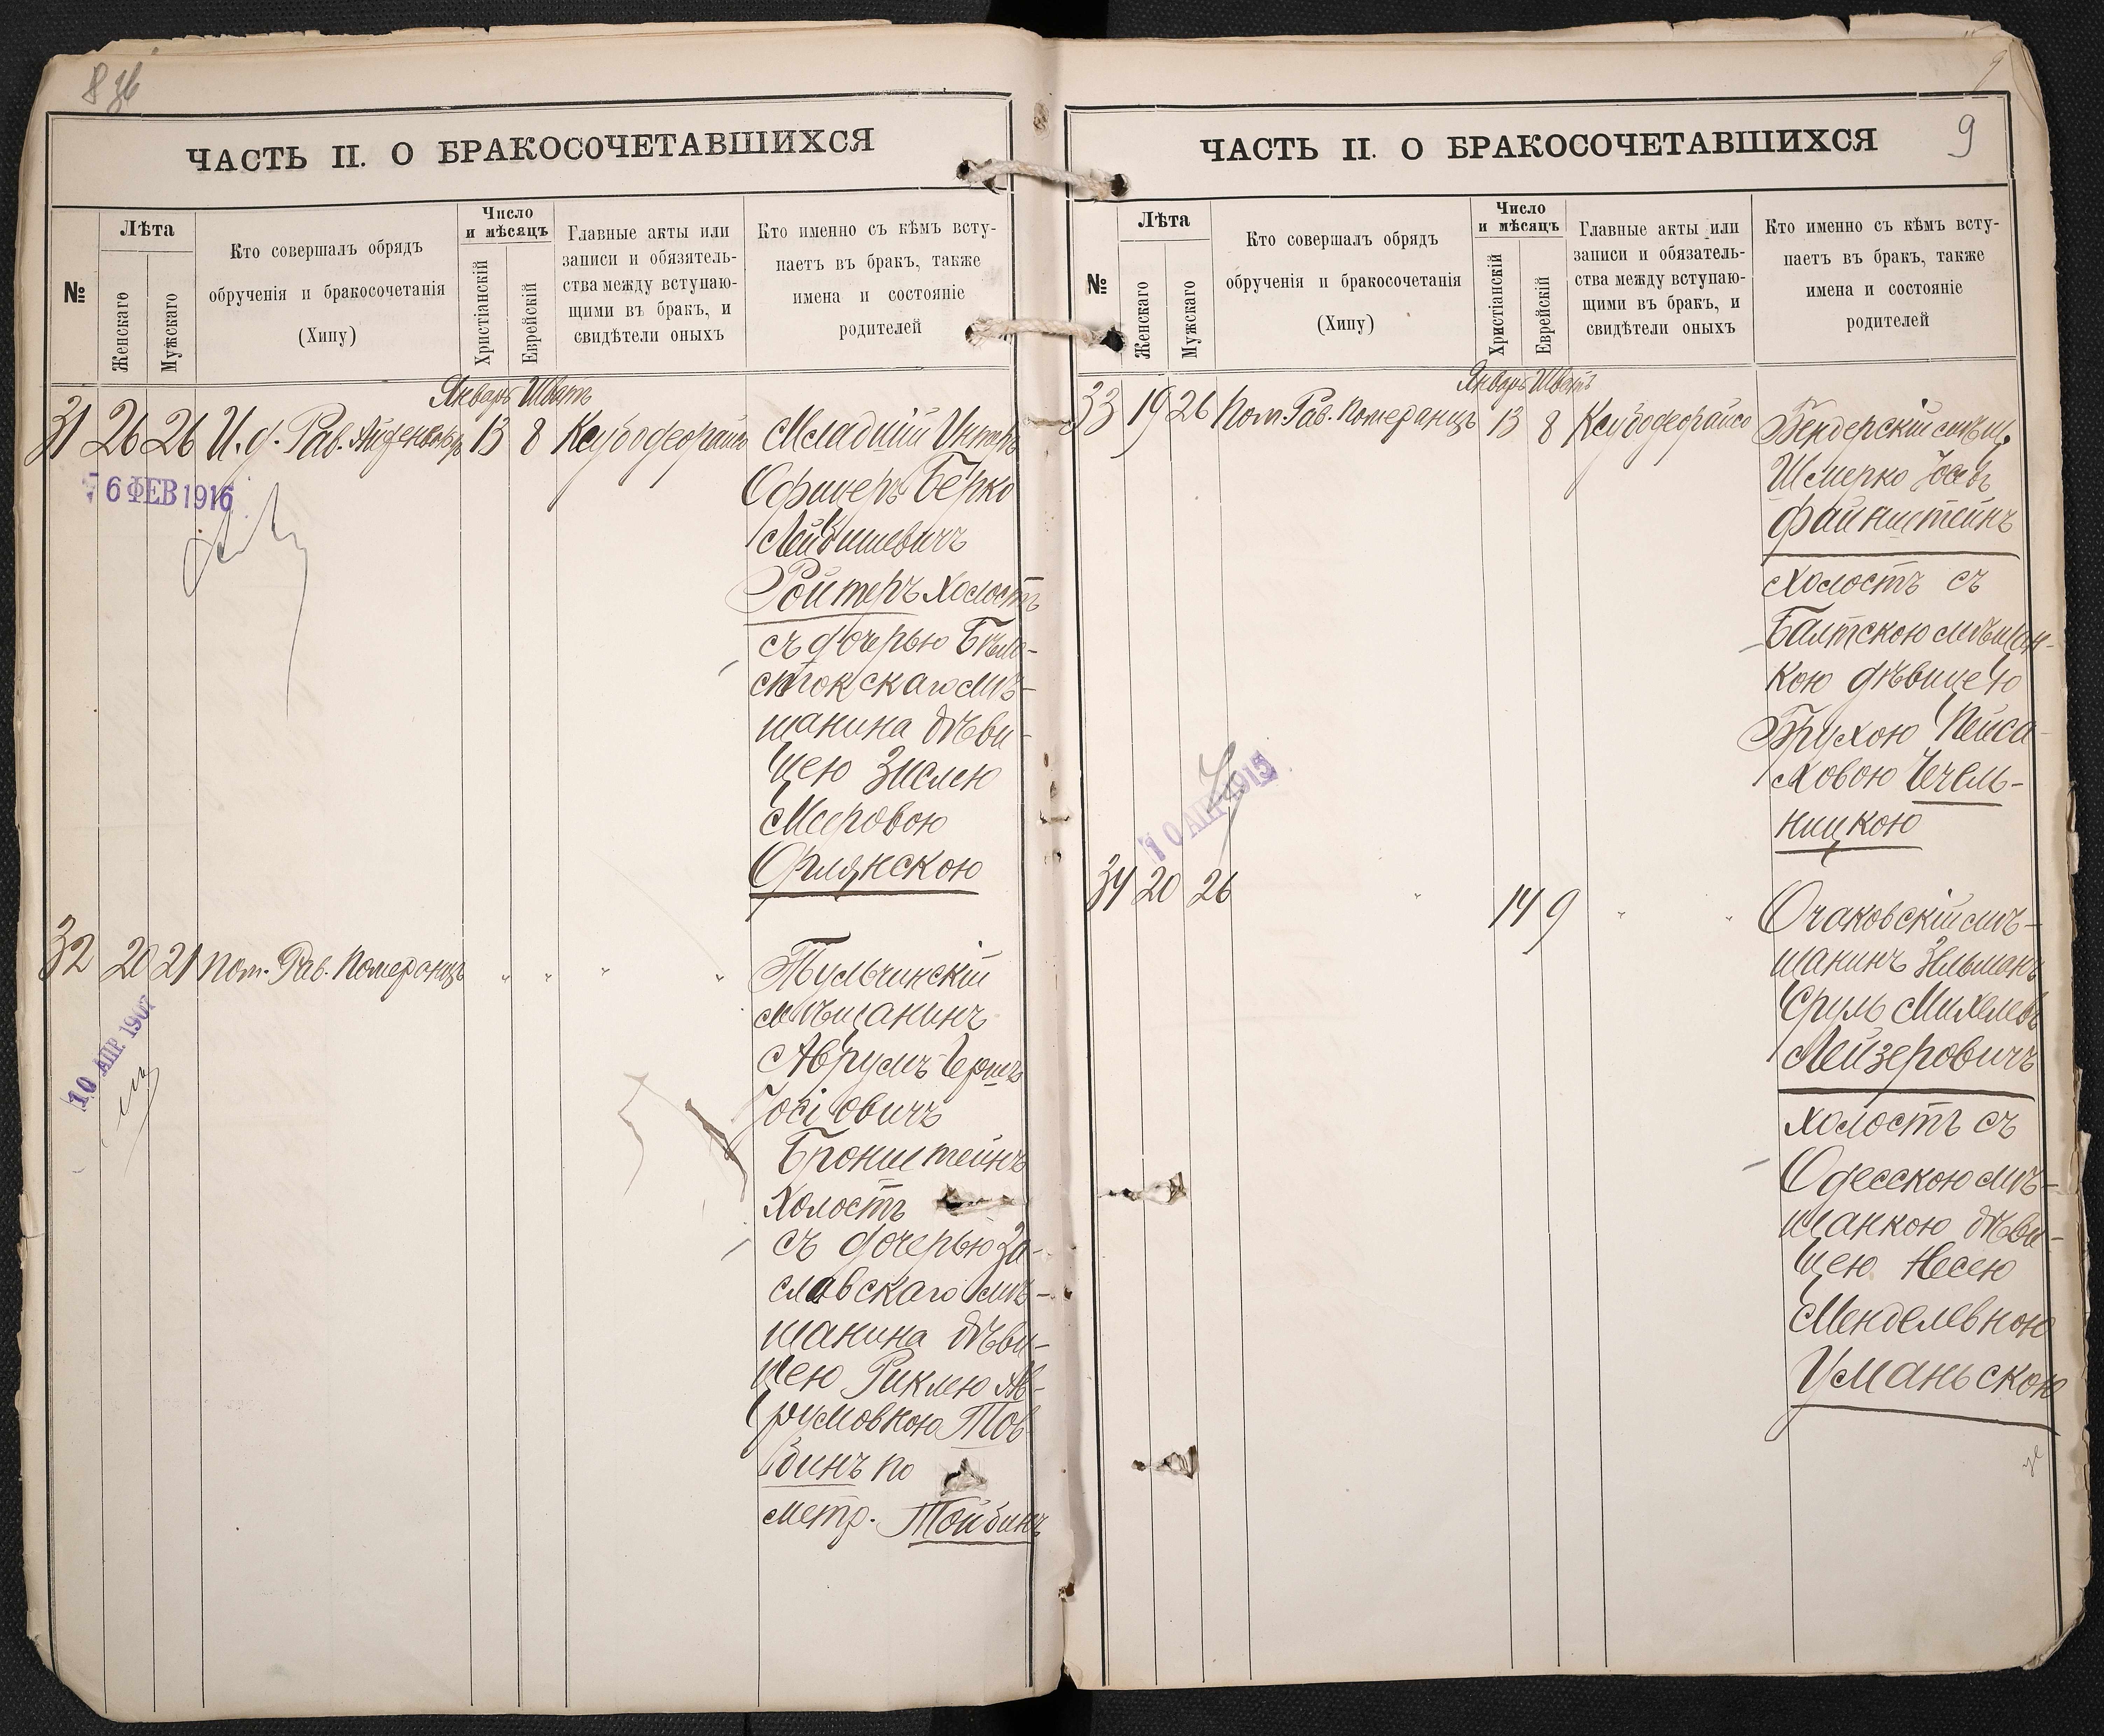 8 зв
ЧАСТЬ II. О БРАКОСОЧЕТАВШИХСЯ
№
Лѣта
Женскаго
Мужскаго
Кто совершалъ обрядъ
обрученія и бракосочетанія
(Хипу)
Число
и мѣсяцъ
Христіанскій
Еврейскій
Главные акты или
записи и обязатель-
ства между вступаю-
щими въ бракъ, и
свидѣтели оныхъ
Кто именно съ кѣмъ всту-
паетъ въ бракъ, также
имена и состояніе
родителей
Январь Шватъ
31 26 26 И. д. Рав. 13 8
Младшій Унтеръ
Офицеръ Берко
Лейбишевичъ
Ройтеръ холостъ
съ дочерью Бѣло-
стокскаго мѣ-
щанина дѣви-
цею Зислею
Мееровою
Орлянскою
6 ФЕВ 1916
32 20 21 пом. Рав. Померанцъ " " " "
Тульчинскій
мѣщанинъ
Аврумъ-Гершъ
Іосіовичъ
Бронштейнъ
холостъ
съ дочерью За-
славскаго мѣ-
щанина дѣви-
цею Риклею Ав-
румовною Тов-
бинъ по
метр. Тойбинъ
10 АПР. 1907
9
9
ЧАСТЬ II. О БРАКОСОЧЕТАВШИХСЯ
№
Лѣта
Женскаго
Мужскаго
Кто совершалъ обрядъ
обрученія и бракосочетанія
(Хипу)
Число
и мѣсяцъ
Христіанскій
Еврейскій
Главные акты или
записи и обязатель-
ства между вступаю-
щими въ бракъ, и
свидѣтели оныхъ
Кто именно съ кѣмъ всту-
паетъ въ бракъ, также
имена и состояніе
родителей
Январь Шватъ
33 19 26 Пом. Рав. Померанцъ 13 8
Бендерскій мѣщ.
Шмерко Іосевъ
Файнштейнъ
холостъ съ
Балтскою мѣщан-
кою дѣвицею
Брухою Пейса-
ховою Чечель-
ницкою
10 АПР 1915
34 20 26 " 14 9 " "
Очаковскій мѣ-
щанинъ Зельманъ
Сруль Михелевъ
Лейзеровичъ
холостъ съ
Одесскою мѣ-
щанкою дѣви-
цею Несею
Менделевною
Уманьскою